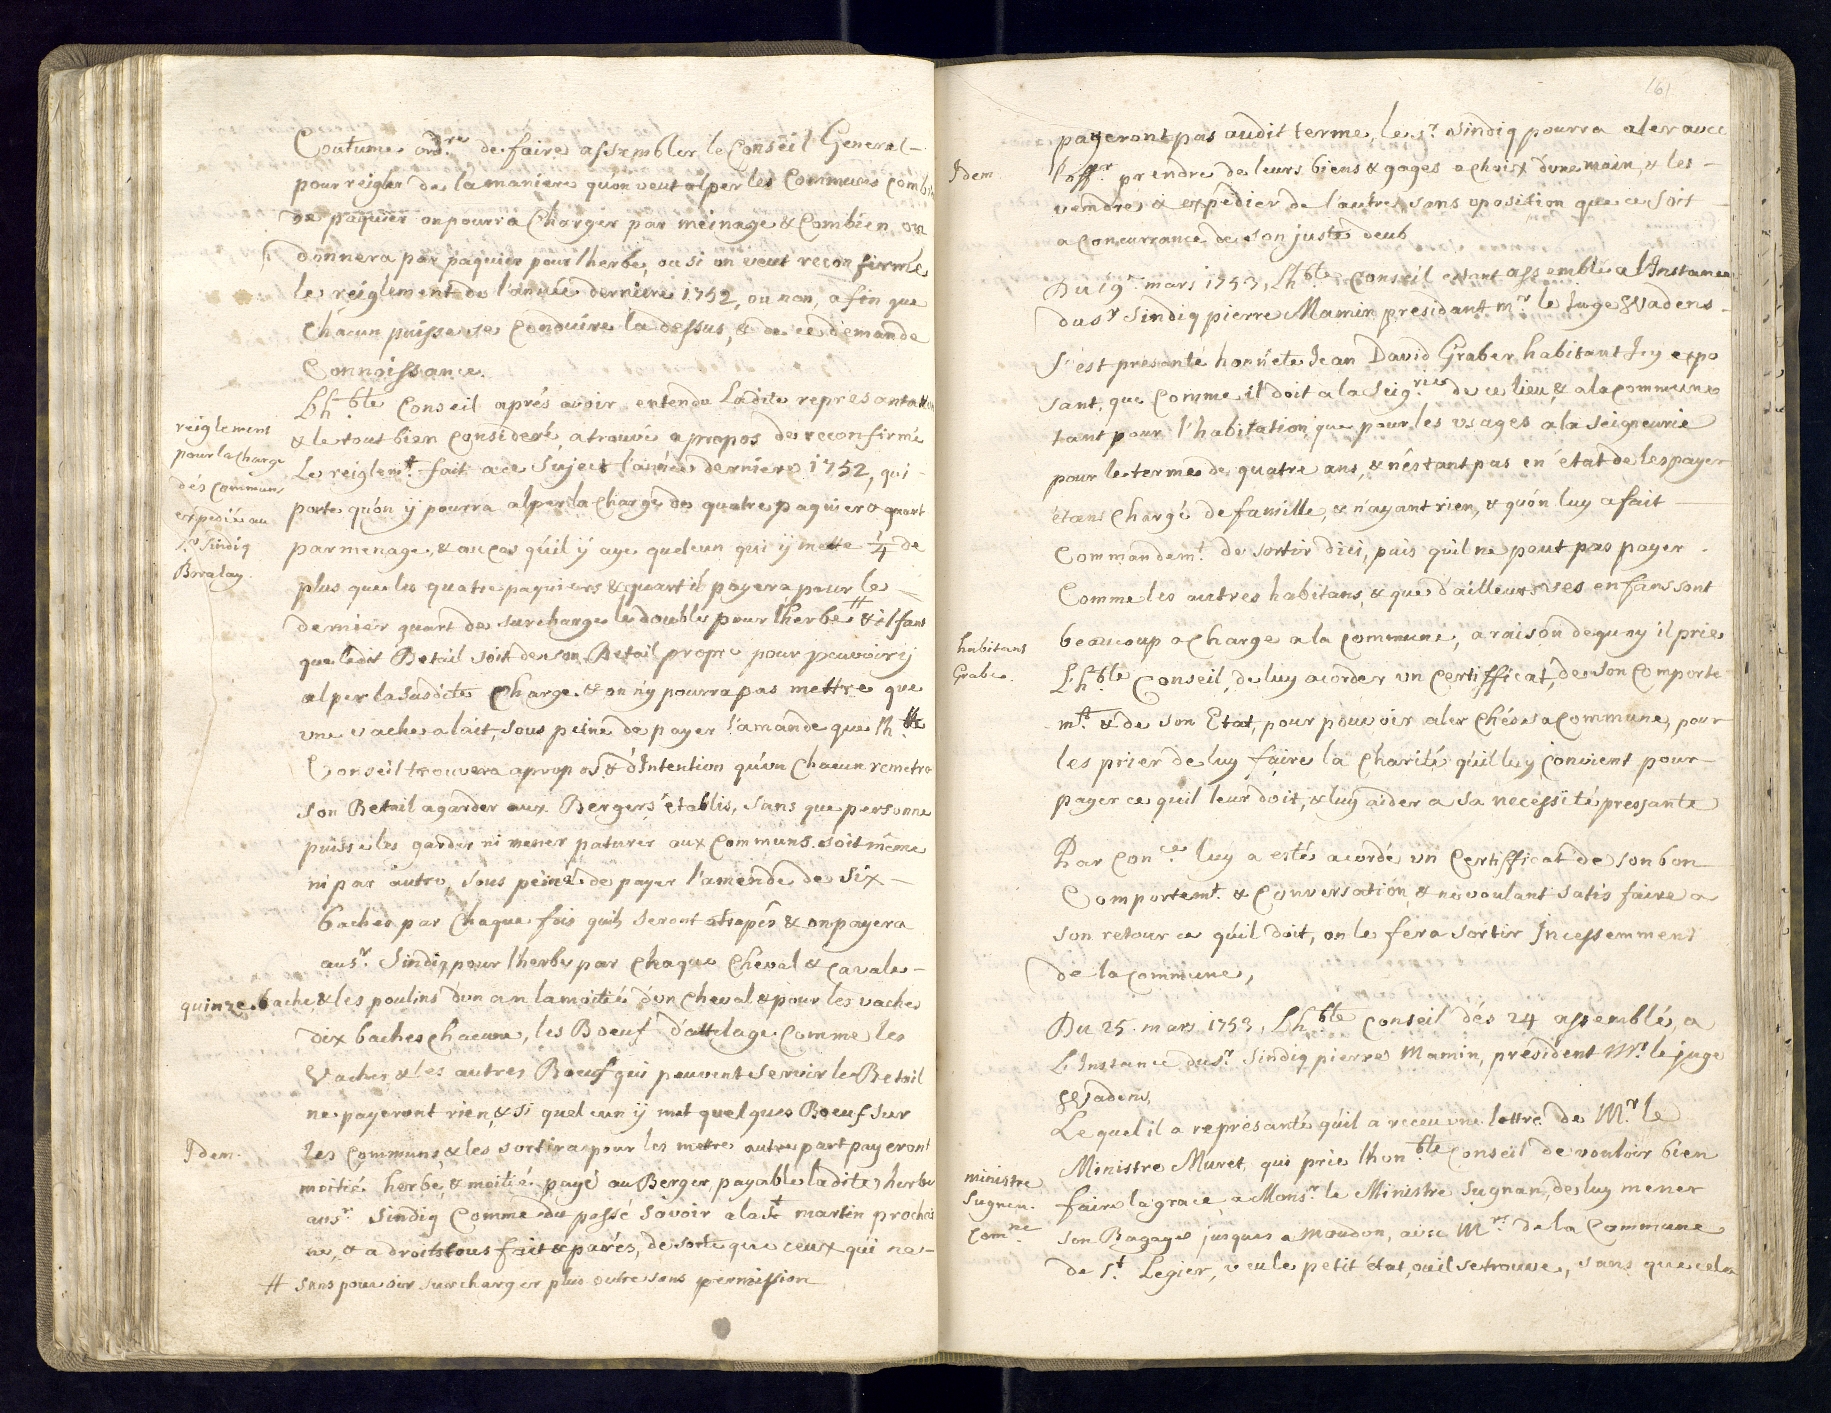 Coutume ord.re de faire assembler le Conseil General
pour reigler de la maniere qu'on veut alper les Communs combi
de paquier on pourra Charger par meinage & Combien on
donnera par paquier pour l'herbe, ou si on veut reconfirmé
le reiglement de l'année derniere 1752, ou non, afin que
Chacun puisse se Conduire la dessus, & de ce demande
Connoissance.
Lh.ble Conseil aprés avoir entendu Ladite represantation
& le tout bien Consideré, a trouvé apropos de reconfirmé
Le reiglemt. fait a ce Suject l'année derniere 1752, qui
porte qu'on ÿ pourra alper la Charge de quatre paquier & quart
par menage, & au cas qu'il ÿ aye quelcun qui ÿ mette 1/4 de
plus que les quatre paquiers & quart il payera pour le
dernier quart de surcharge le double pour l'herbe # & il faut
que ledit Betail soit de son Betail propre pour pouvoir ÿ
alper la Susdite Charge & on n'y pourra pas mettre que
une vache a lait, sous peine de payer l'amande que lh.ble
Conseil trouvera apropos & d'Intention qu'un Chacun remetra
son Betail a garder aux Bergers établis, sans que personne
puisse les garder ni mener paturer aux Communs soit même
ni par autre, sous peine de payer l'amende de Six
baches par Chaque fois qu'ils seront atrapés & on payera
au sr. Sindiq pour l'herbe par Chaque Cheval & cavale
quinze bache & les poulins d'un an la moitié d'un Cheval & pour les vaches
dix baches Chacune, les Boeuf d'attelage Comme les
Vaches & les autres Boeuf qui peuvent servir le Betail
ne payeront rien, & si quelcun ÿ met quelques Boeuf sur
les Communs & les sortira pour les mettre autre part payeront
moitié herbe, & moitié payé au Berger, payable ladite herbe
au sr. Sindiq Comme du passé savoir a la St. martin prochai
ne, & a droits tous fait & parés, de sorte que ceux qui ne
# sans pouvoir surcharger plus outre sans permission
reiglement
pour la Charge
dés Communs
expedié au
sr. Sindiq
Idem.
161
payeront pas audit terme, le sr. Sindiq pourra aler avec
l'offr. prendre de leurs biens & gages a choix d'une main, & les
vendre & expedier de l'autre, sans oposition que ce soit
a Concurrance de son juste deub
Du 19e. mars 1753, Lh.ble Conseil estant assemblé a l'Instance
du sr. Sindiq pierre Mamin, presidant mr. le juge DeVadens
S'est presanté honnete Jean David Graber habitant Icy expo
sant, que Comme il doit a la Seigrie. de ce lieu, & a la commune
tant pour l'habitation, que pour les usages a la Seigneurie
pour le terme de quatre ans, & n'estant pas en état de les payer
étant Chargé de famille, & n'ayant rien, & qu'on luy a fait
Commandemt. de sortir d'ici, puis qu'il ne peut pas payer
Comme les autres habitans, & que d'ailleurs ses enfans sont
beaucoup a Charge a la Commune, a raison dequoy il prie
Lh.ble Conseil, de luy acorder un Certifficat, de son Comporte
mt. & de son Etat, pour pouvoir aler Chés sa Commune, pour
les prier de luy faire la Charité qu'il luy Convient pour
payer ce qu'il leur doit, & luy aider a Sa necessité pressante
Par Con.ce luy a esté acordé un Certifficat de son bon
Comportemt. & Conversation, & ne voulant satisfaire a
son retour ce qu'il doit, on le fera sortir Incessemment
de la Commune,
Du 25. mars 1753, Lh.ble Conseil dés 24 assemblé, a
L'Instance du sr. Sindiq pierre Mamin, président Mr. le juge
DeVadens,
Lequel il a représanté qu'il a receu une lettre de Mr. le
Ministre Muret, qui prie l'hon.ble Conseil de vouloir bien
faire la grace, a Monsr. le Ministre Sugnan, de luy mener
son Bagage jusques a Moudon, avec Mrs. de la Commune
de St. Legier, veu le petit état, ou il se trouve, sans que cela
Idem
habitans
Grabe.
ministre
Sugnen.
Comne.